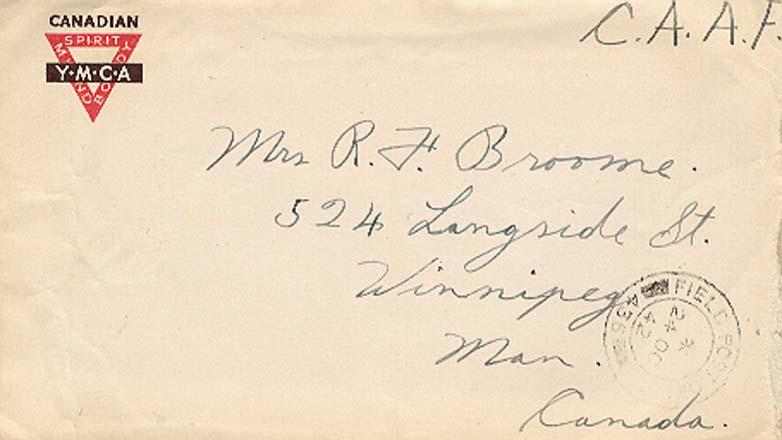 CANADIAN
SPIRIT
MIND
BODY
Y·M·C·A
C.A.A.F.
Mrs R. F. Broome.
524 Langside St.
Winnipeg
Man.
Canada.
FIELD POST
436